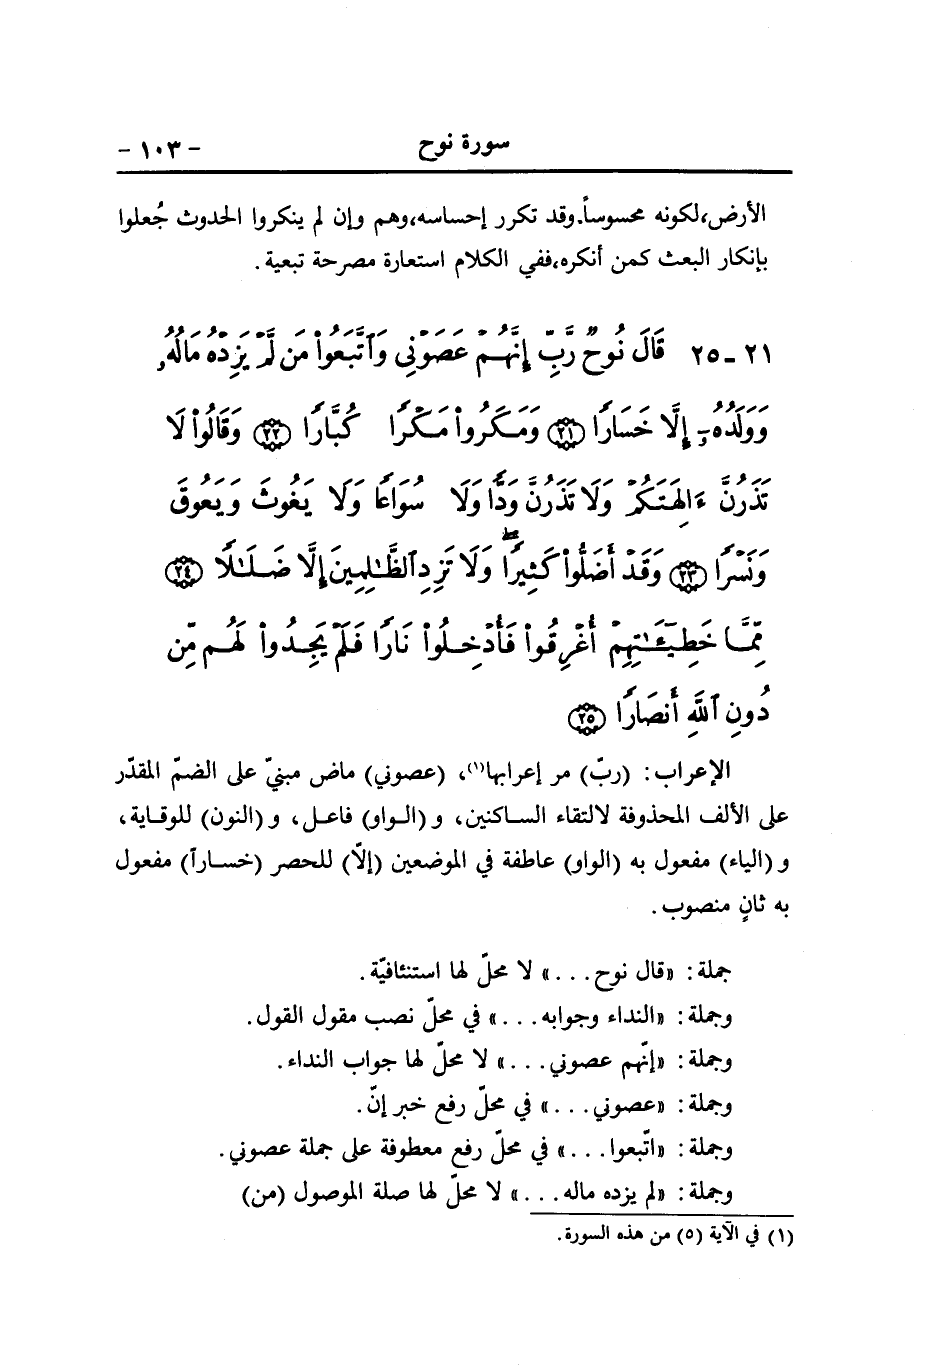 سورة نوح - ١٠٣ -
الأرض،لكونه محسوساً.وقد تكرر إحساسه،وهم وإن لم ينكروا الحدوث جُعلوا
بإنكار البعث كمن أنكره،ففي الكلام استعارة مصرحة تبعية.
٢١ - ٢٥ قَالَ نُوحٌ رَّبِّ إِنَّهُمْ عَصَوْنِي وَٱتَّبَعُوا۟ مَن لَّمْ يَزِدْهُ مَالُهُۥ
وَوَلَدُهُۥٓ إِلَّا خَسَارًا ﴿٢١﴾ وَمَكَرُوا۟ مَكْرًا كُبَّارًا ﴿٢٢﴾ وَقَالُوا۟ لَا
تَذَرُنَّ ءَالِهَتَكُمْ وَلَا تَذَرُنَّ وَدًّا وَلَا سُوَاعًا وَلَا يَغُوثَ وَيَعُوقَ
وَنَسْرًا ﴿٢٣﴾ وَقَدْ أَضَلُّوا۟ كَثِيرًا ۖ وَلَا تَزِدِ ٱلظَّـٰلِمِينَ إِلَّا ضَلَـٰلًا ﴿٢٤﴾
مِّمَّا خَطِيٓـَٔـٰتِهِمْ أُغْرِقُوا۟ فَأُدْخِلُوا۟ نَارًا فَلَمْ يَجِدُوا۟ لَهُم مِّن
دُونِ ٱللَّهِ أَنصَارًا ﴿٢٥﴾
الإعراب: (ربّ) مر إعرابها(١)، (عصوني) ماض مبنيّ على الضمّ المقدّر
على الألف المحذوفة لالتقاء الساكنين، و (الواو) فاعل، و (النون) للوقاية،
و (الياء) مفعول به (الواو) عاطفة في الموضعين (إلّا) للحصر (خساراً) مفعول
به ثانٍ منصوب.
جملة: «قال نوح...» لا محلّ لها استئنافيّة.
وجملة: «النداء وجوابه...» في محلّ نصب مقول القول.
وجملة: «إنّهم عصوني...» لا محلّ لها جواب النداء.
وجملة: «عصوني...» في محلّ رفع خبر إنّ.
وجملة: «اتّبعوا...» في محلّ رفع معطوفة على جملة عصوني.
وجملة: «لم يزده ماله...» لا محلّ لها صلة الموصول (من)
(١) في الآية (٥) من هذه السورة.